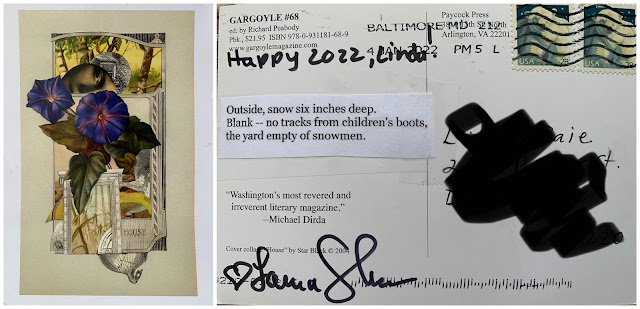 HOUSE
GARGOYLE #68
ed. by Richard Peabody
Pbk., $21.95 ISBN 978-0-931181-68-9
www.gargoylemagazine.com
Paycock Press
Arlington, VA 22207
BALTIMORE MD 212
4 JAN 2022 PM 5 L
Happy 2022, Linda!
USA
USA
Outside, snow six inches deep.
Blank -- no tracks from children's boots,
the yard empty of snowmen.
"Washington's most revered and
irreverent literary magazine."
--Michael Dirda
Cover collage "House" by Star Black © 2004